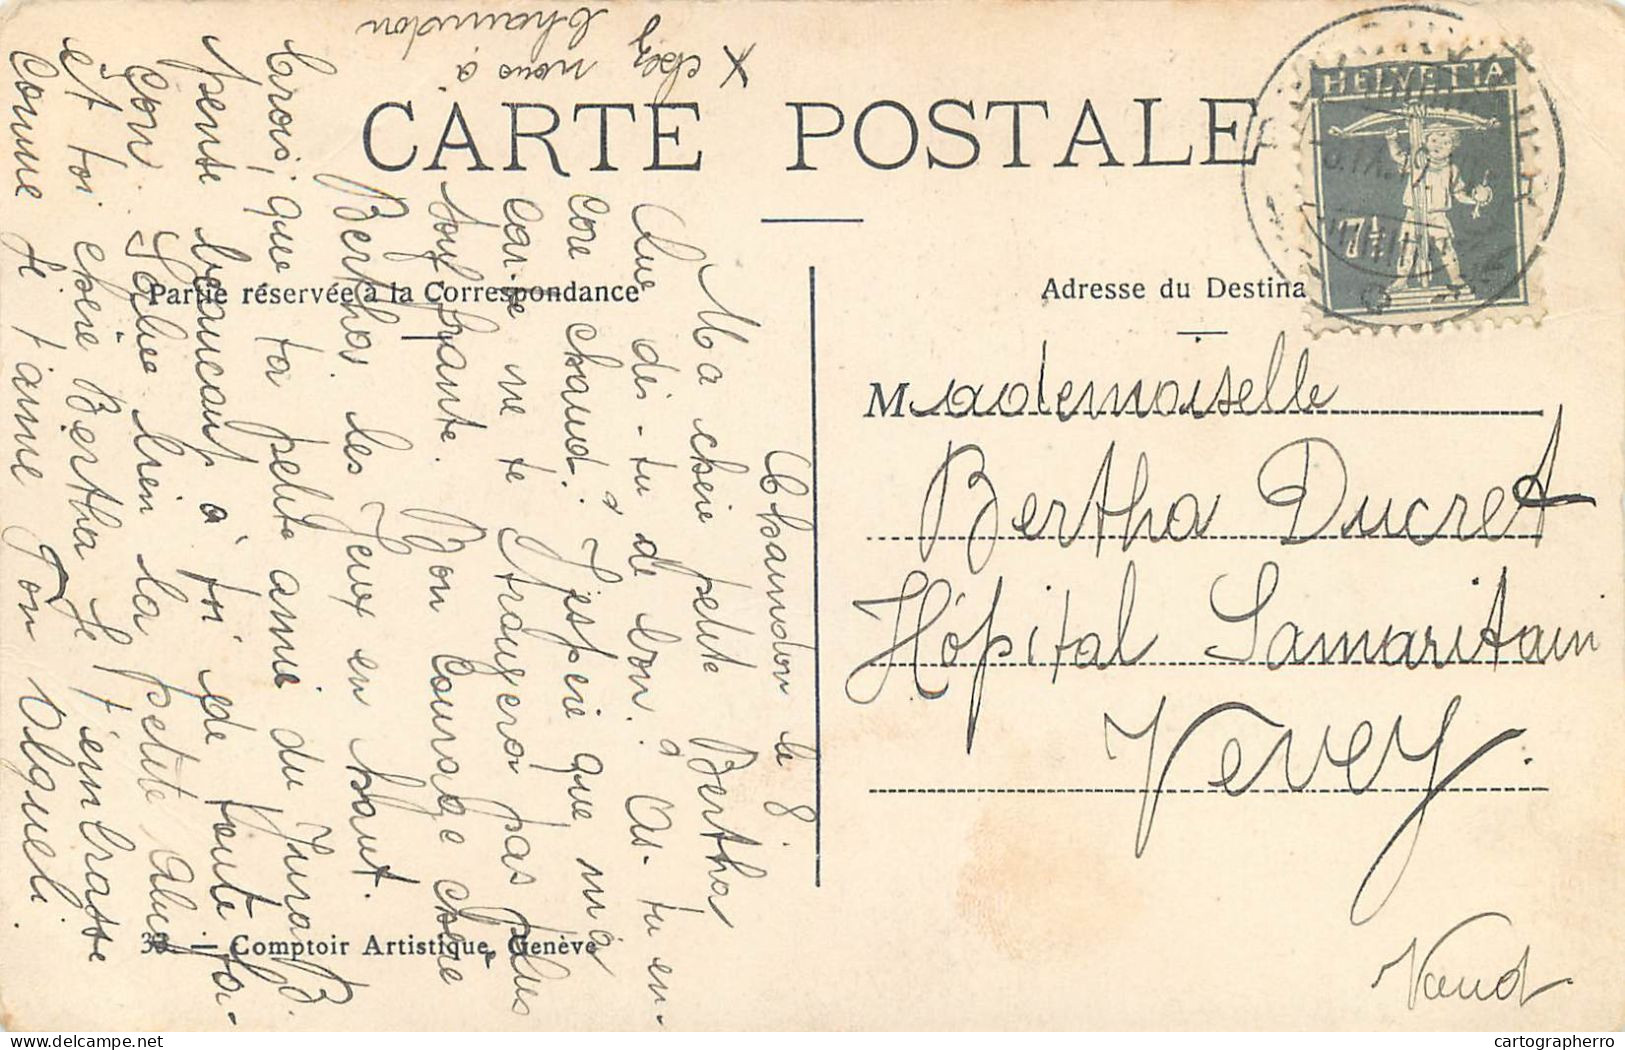 x chez
nous à
Chamdon
CARTE POSTALE
Partie réservée à la Correspondance
Adresse du Destina
HELVETIA
7½
Mademoiselle
Bertha Ducret
Hôpital Samaritain
Vevey.
Vaud
Chamdon le 8
Ma chère petite Bertha
Que dis-tu de bon? As-tu en-
core chaud? J'espère que ma
car-te ne te trouvera pas plus
souffrante. Bon Courage chère
Bertha. les Yeux en haut.
Crois, que ta petite amie du Jura
pense beaucoup à toi de toute
Con. Sache bien la petite
et toi chère Bertha Je t'embrasse
Comme Je t'aime Ton Olgueli.
33 — Comptoir Artistique, Genève
cartographerro